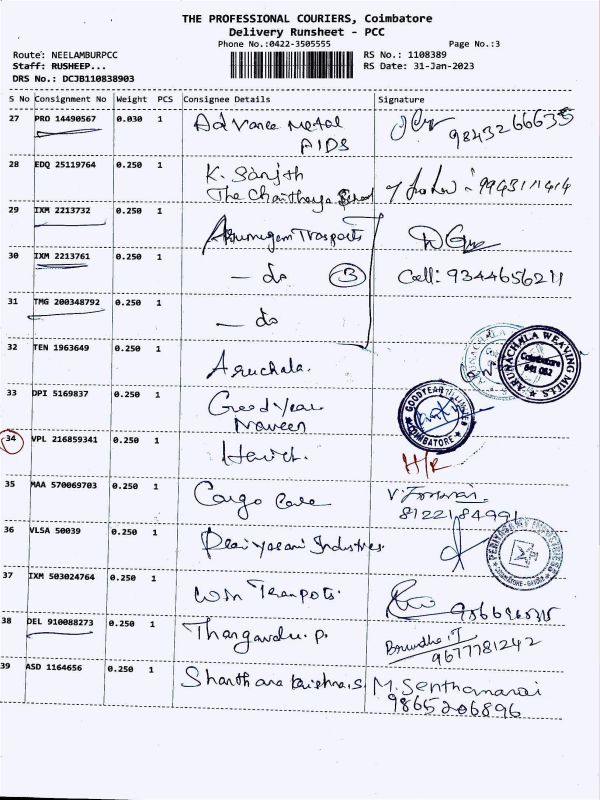 THE PROFESSIONAL COURIERS, Coimbatore
Delivery Runsheet - PCC
Phone No.:0422-3505555
Page No.:3
Route: NEELAMBURPCC
RS No.: 1108389
Staff: RUSHEEP...
RS Date: 31-Jan-2023
DRS No.: DCJB110838903
S No Consignment No Weight PCS Consignee Details Signature
27 PRO 14490567 0.030 1 Advance Metal
AIDS 9843266635
28 EDQ 25119764 0.250 1 K. Sanjth
The Chaithanya School
29 IXM 2213732 0.250 1 Arumugam Trasports
30 IXM 2213761 0.250 1 - do 3 Cell: 9344656211
31 TMG 200348792 0.250 1 - do
32 TEN 1963649 0.250 1 Aruchala.
ARUNACHALA WEAVING MILLS
Coimbatore
641 062
33 DPI 5169837 0.250 1 Good year
Naveen
GOODYEAR
COIMBATORE
34 VPL 216859341 0.250 1 H/R
35 MAA 570069703 0.250 1 Cargo Care
8122184991
36 VLSA 50039 0.250 1 Periyasami Industries
PERIYASAMY INDUSTRIES
37 IXM 503024764 0.250 1 Win Tranpots.
38 DEL 910088273 0.250 1 Thangavelu. P.
9677781242
39 ASD 1164656 0.250 1 Shanthara Krishna.S. M. Senthamarai
9865206896